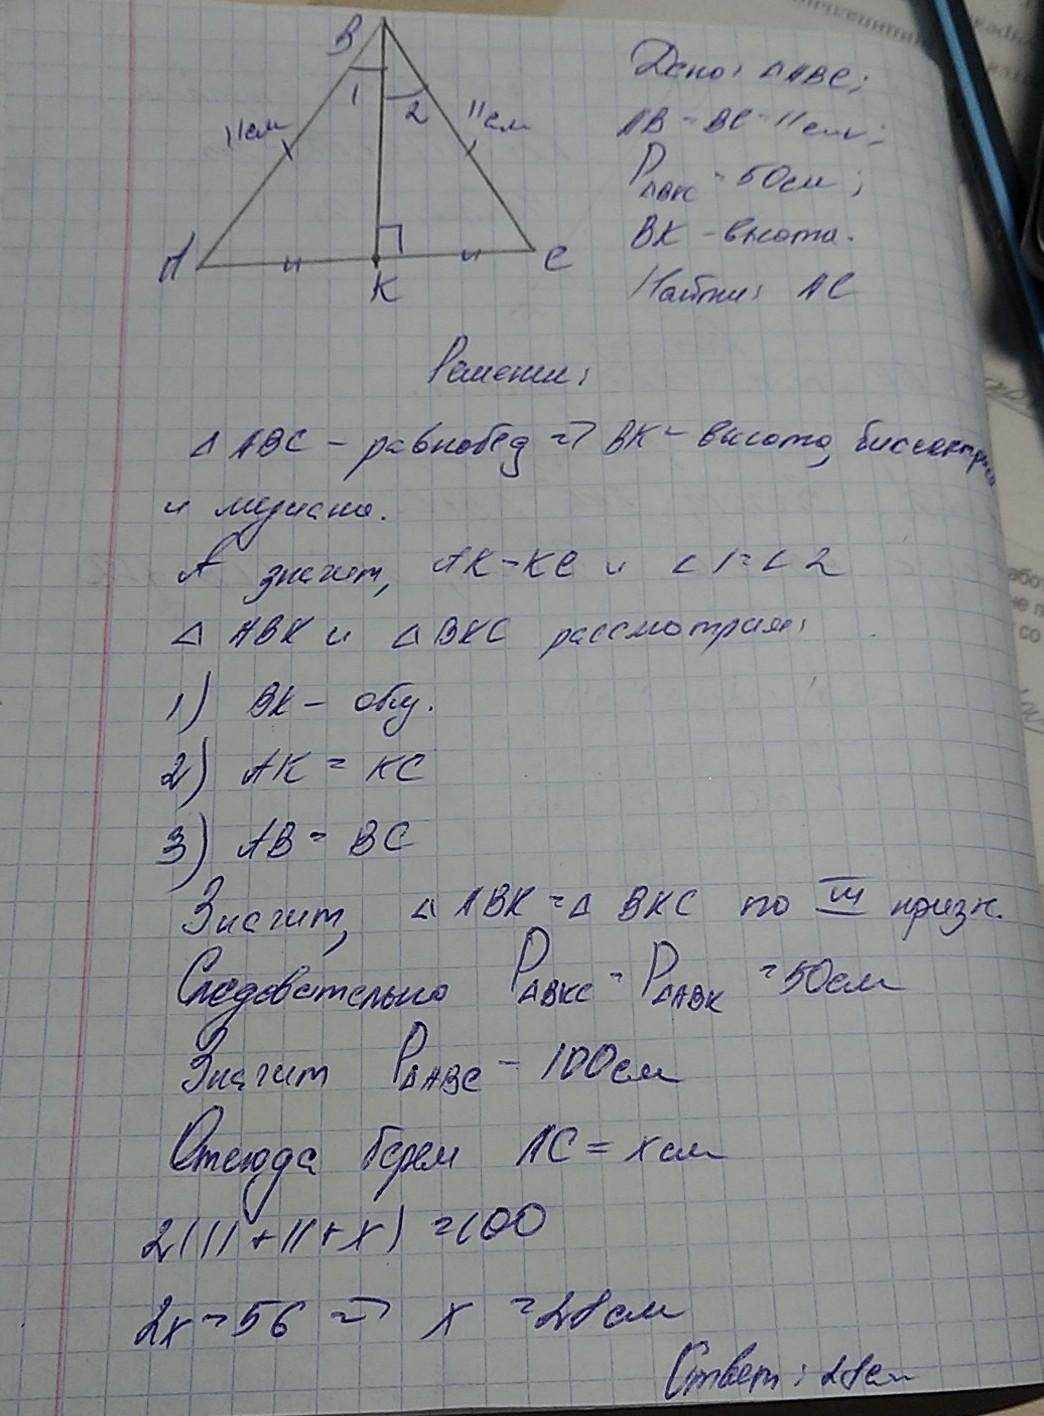 B
1
2
11см
11см
A
K
C
Дано: △ABC;
AB = BC = 11см;
P△BKC = 50см;
BK - высота.
Найти: AC
Решени:
△ ABC - равнобед => BK - высота, биссектриса
и медиана.
А значит, AK = KC и ∠1 = ∠2
△ ABK и △ BKC рассмотрим:
1) BK - общ.
2) AK = KC
3) AB = BC
Значит, △ ABK = △ BKC по III призн.
Следовательно P△BKC = P△ABK = 50см
Значит P△ABC - 100см
Отсюда берем AC = x см
2(11 + 11 + x) = 100
2x = 56 => x = 28см
Ответ: 28см